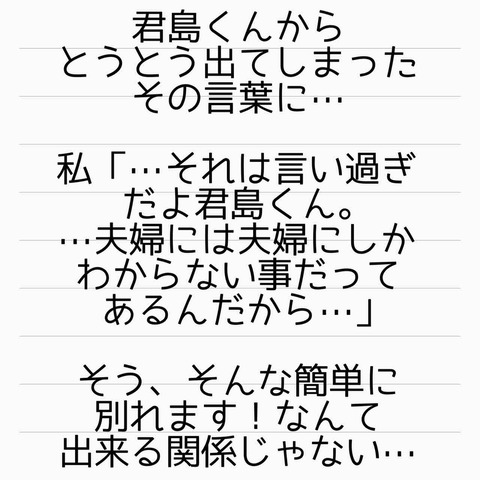 君島くんから
とうとう出てしまった
その言葉に…
私「…それは言い過ぎ
だよ君島くん。
…夫婦には夫婦にしか
わからない事だって
あるんだから…」
そう、そんな簡単に
別れます！なんて
出来る関係じゃない…